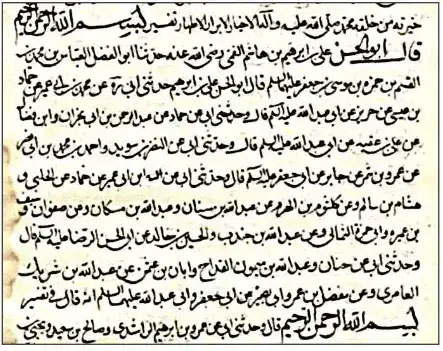 خيرته من خلقه محمد صلى الله عليه وآله الاخيار الابرار الاطهار تفسير بسم الله الرحمن الرحيم
قال ابو الحسن علي بن ابرهيم بن هاشم القمي رضي الله عنه حدثنا ابو الفضل العباس بن محمد بن
القسم بن حمزة بن موسى بن جعفر عليهما السلم قال ابو الحسن علي بن ابرهيم حدثني ابي ره عن محمد بن ابي عمير عن حماد
بن عيسى عن حريز عن ابي عبد الله عليه السلم قال وحدثني ابي عن حماد عن عبد الرحمن بن ابي نجران وابن فضال
عن علي بن عقبه عن ابي عبد الله عليه السلم قال وحدثني ابي عن النضر بن سويد واحمد بن محمد بن ابي نصر
عن عمرو بن شمر عن جابر عن ابي جعفر عليه السلم قال وحدثني ابي عن ابن ابي عمير عن حماد عن الحلبي و
هشام بن سالم وعن كلثوم بن الهرم عن عبد الله بن سنان و عبد الله بن مسكان وعن صفوان و سيف
بن عميره وابي حمزة الثمالي وعن عبد الله بن جندب والحسين بن خالد عن ابي الحسن الرضا عليه السلم قال
وحدثني ابي عن حنان وعبد الله بن ميمون القداح وابان بن عثمن عن عبد الله بن شريك
العامري وعن مفضل بن عمر وابي بصير عن ابي جعفر وابي عبد الله عليهما السلم انه قال في تفسير
بسم الله الرحمن الرحيم قال وحدثني ابي عن عمرو بن ابرهيم الراشدي وصالح بن سعيد ويحيى بن